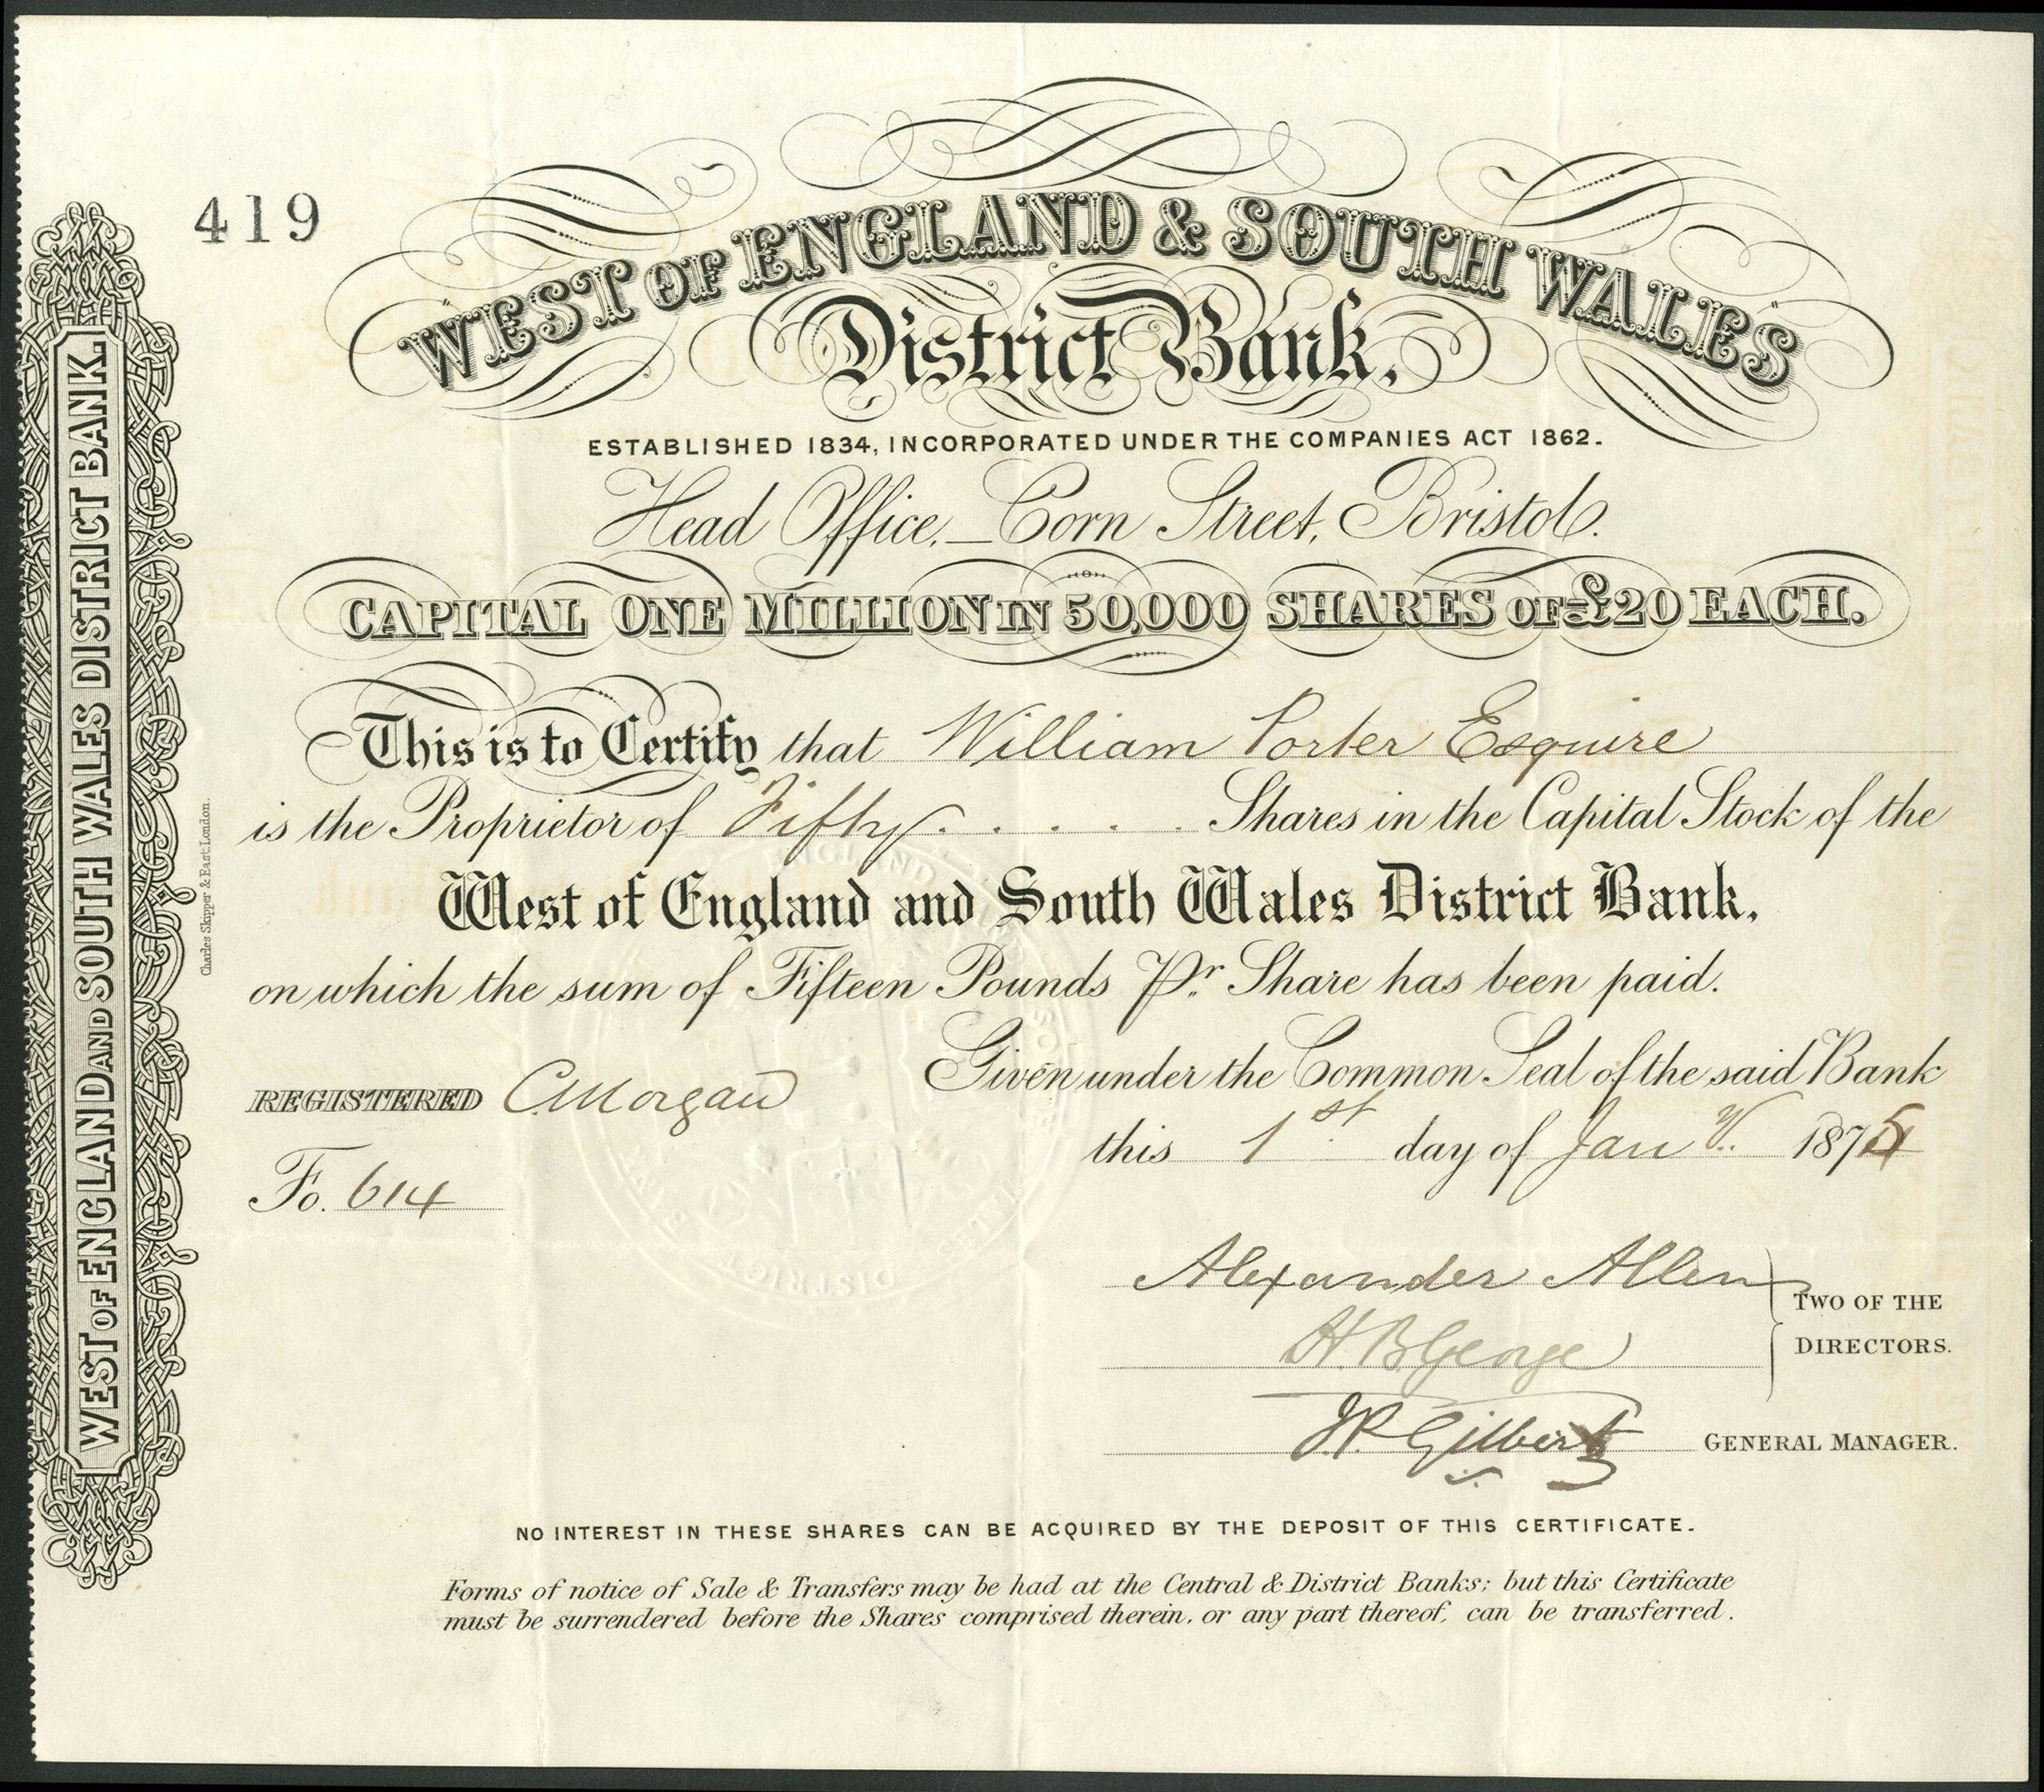 419
WEST OF ENGLAND & SOUTH WALES
District Bank.
ESTABLISHED 1834, INCORPORATED UNDER THE COMPANIES ACT 1862.
Head Office,_Corn Street, Bristol.
CAPITAL ONE MILLION IN 50,000 SHARES OF £20 EACH.
This is to Certify that William Porter Esquire
is the Proprietor of Fifty . . . . . Shares in the Capital Stock of the
West of England and South Wales District Bank,
on which the sum of Fifteen Pounds Pr. Share has been paid.
Given under the Common Seal of the said Bank
REGISTERED C. Morgan
this 1st. day of Jany. 1875
Fo. 614
Alexander Allen
H. B. George
TWO OF THE
DIRECTORS.
J P Gilbert GENERAL MANAGER.
NO INTEREST IN THESE SHARES CAN BE ACQUIRED BY THE DEPOSIT OF THIS CERTIFICATE.
Forms of notice of Sale & Transfers may be had at the Central & District Banks; but this Certificate
must be surrendered before the Shares comprised therein, or any part thereof, can be transferred.
WEST OF ENGLAND AND SOUTH WALES DISTRICT BANK.
Charles Skipper & East. London.